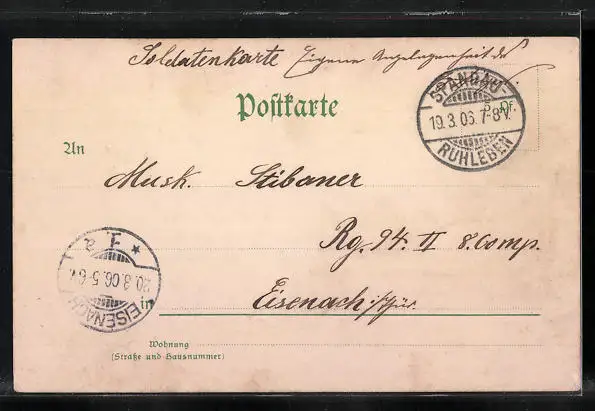 Soldatenkarte Eigene Angelegenheit des
Postkarte
SPANDAU-
5 Pf.
19.3.06.7-8V.
RUHLEBEN
An
Musk. Stibaner
Rg. 94. II 8. Comp.
20.3.06.5-6V.
EISENACH
in Eisenach i/Thür.
Wohnung
(Straße und Hausnummer)